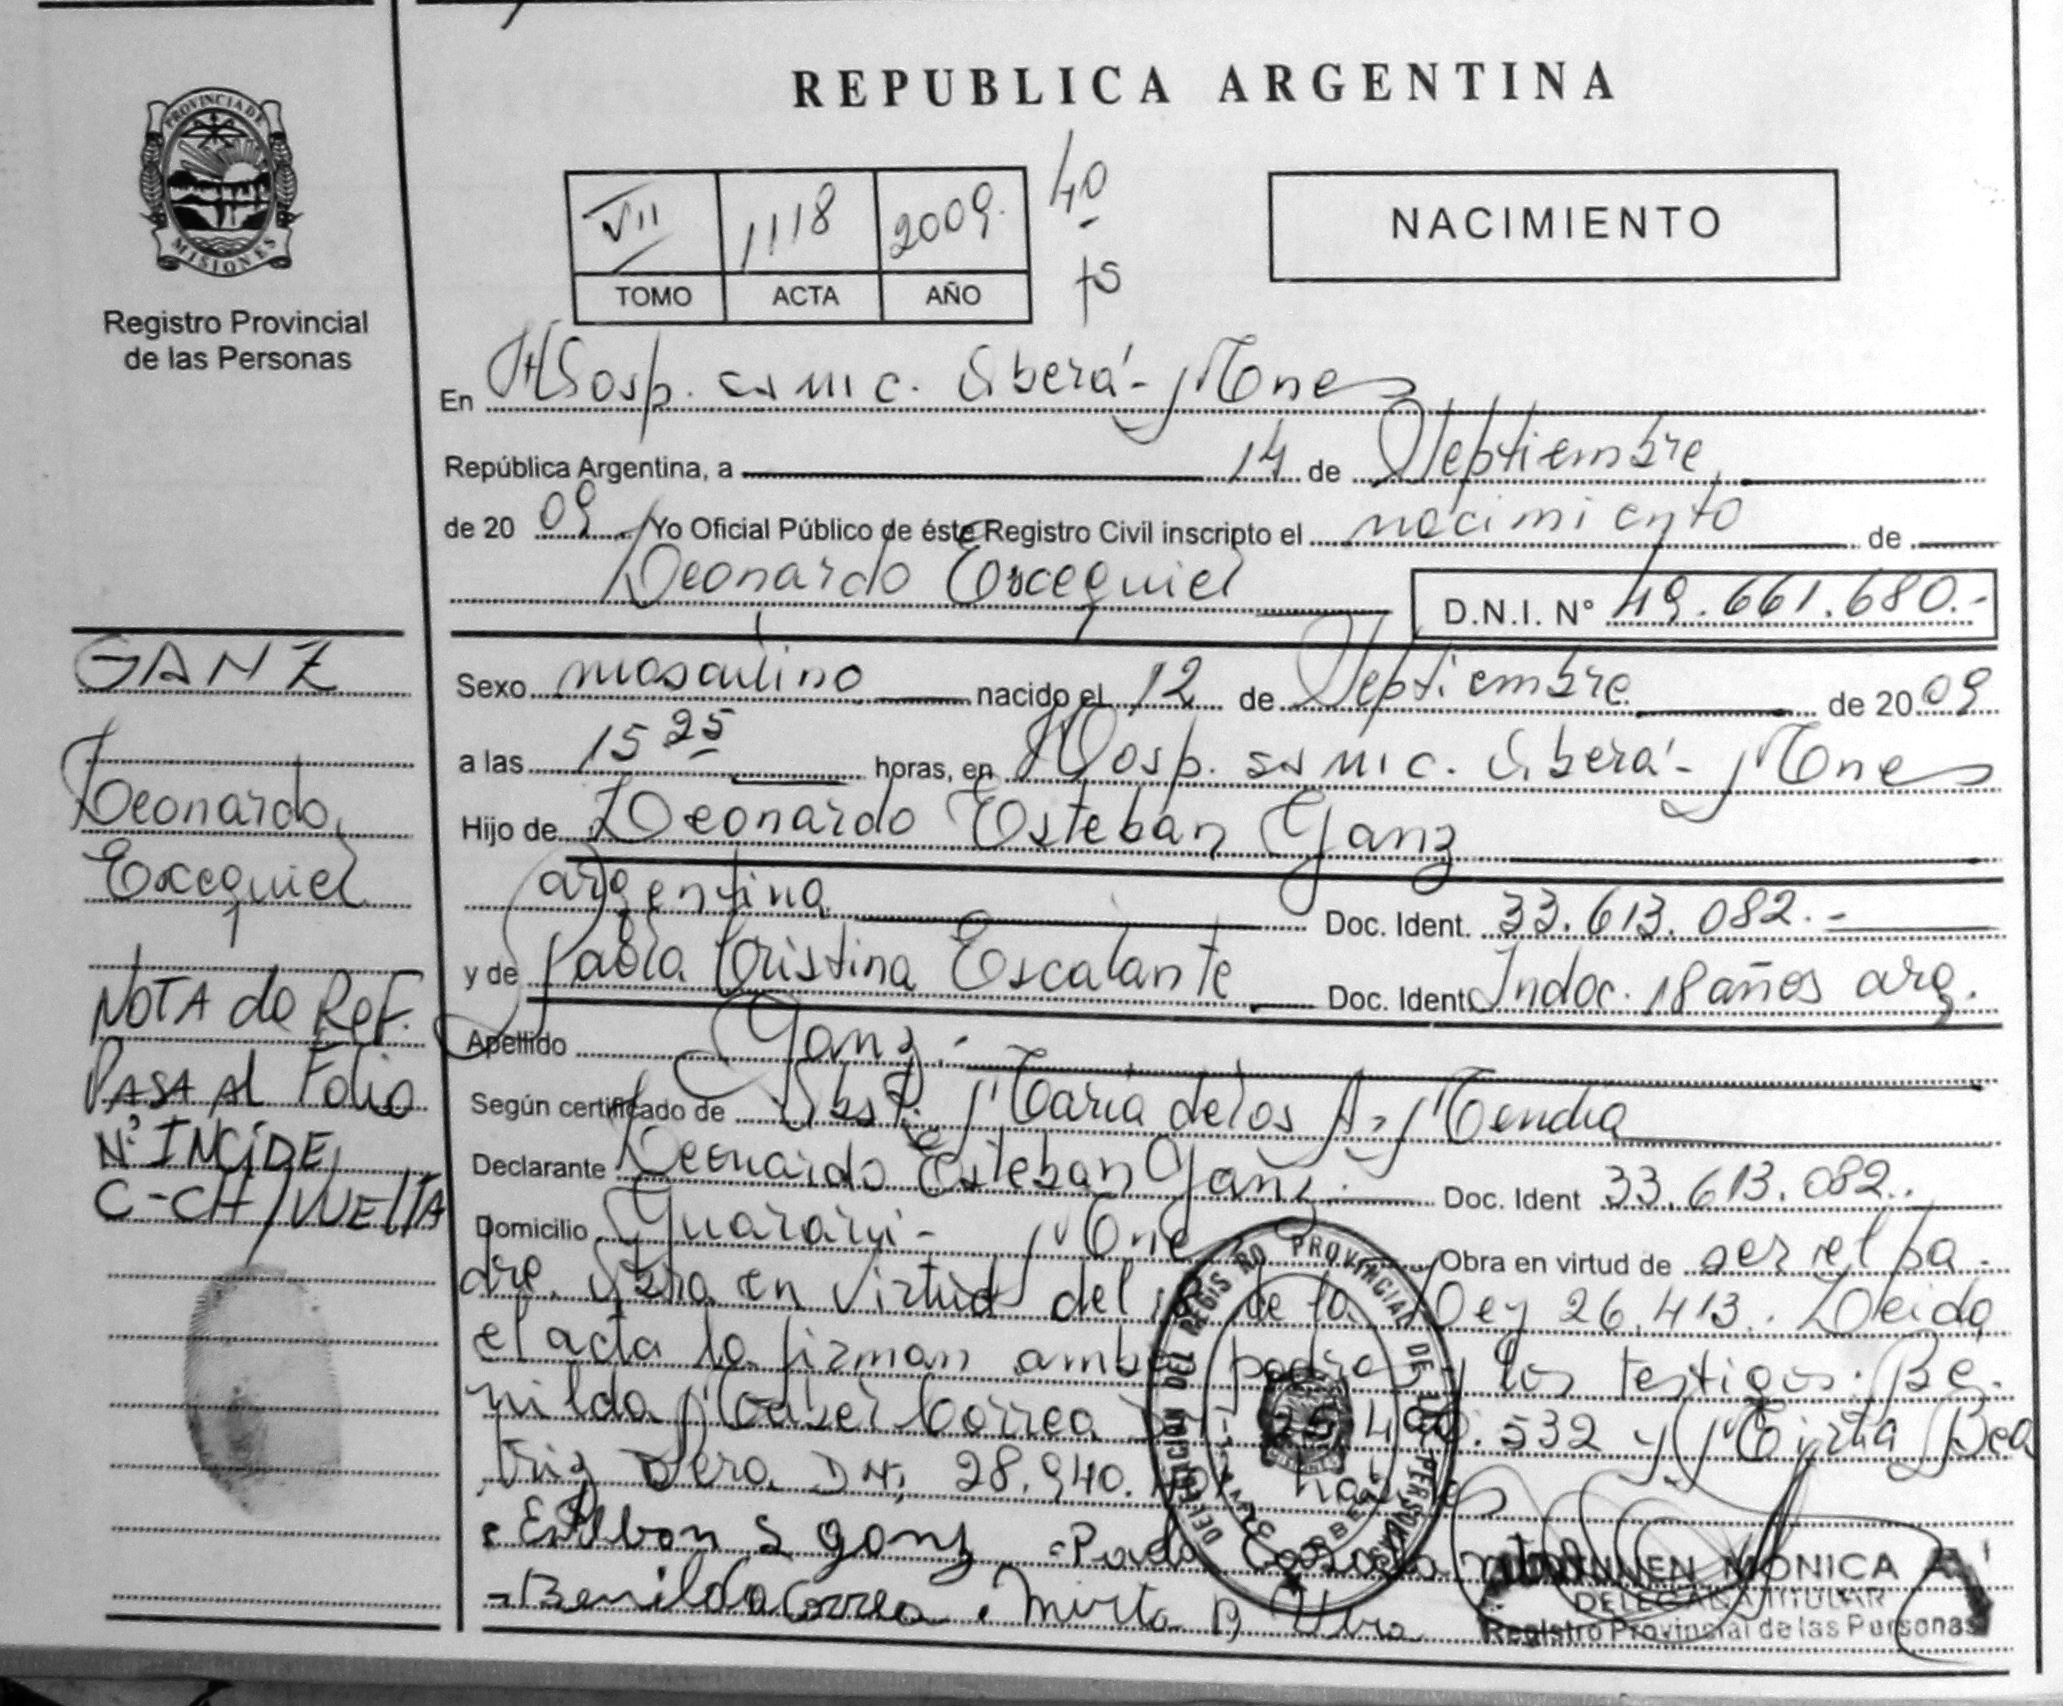 REPUBLICA ARGENTINA
PROVINCIA DE
MISIONES
Registro Provincial
de las Personas
VII 1118 2009.
TOMO ACTA AÑO
40
NACIMIENTO
En Hosp. Oberá - Mnes
República Argentina, a 14 de Septiembre
de 20 09 Yo Oficial Público de éste Registro Civil inscripto el nacimiento de
Leonardo Exequiel D.N.I. N° 49.661.680.-
GANZ
Leonardo
Exequiel
NOTA de Ref.
PASA Al Folio
N° INCIDE,
C-CH/VUELTA
Sexo masculino nacido el 12 de Septiembre de 20 09
a las 15 25 horas, en Hosp. Oberá - Mnes
Hijo de Leonardo Esteban Ganz
argentina Doc. Ident. 33.613.082.-
y de Paola Cristina Escalante Doc. Ident. Indoc. 18 años arg.
Apellido Ganz.-
Según certificado de Obst. María de los A.
Declarante Leonardo Esteban Ganz.- Doc. Ident 33.613.082.
Domicilio Guaraní - Mnes Obra en virtud de ser el pa-
dre. en virtud del de la Ley 26.413. Leida
el acta la firman ambos padres y los testigos: Be-
nilda Correa .532 y Mirta Bea
triz DNI 28.940.
Esteban L ganz
- Benilda Correa . Mirta B
REGISTRO PROVINCIAL DE LAS PERSONAS
DELEGACION
OBERA
MONICA
DELEGADA TITULAR
Registro Provincial de las Personas